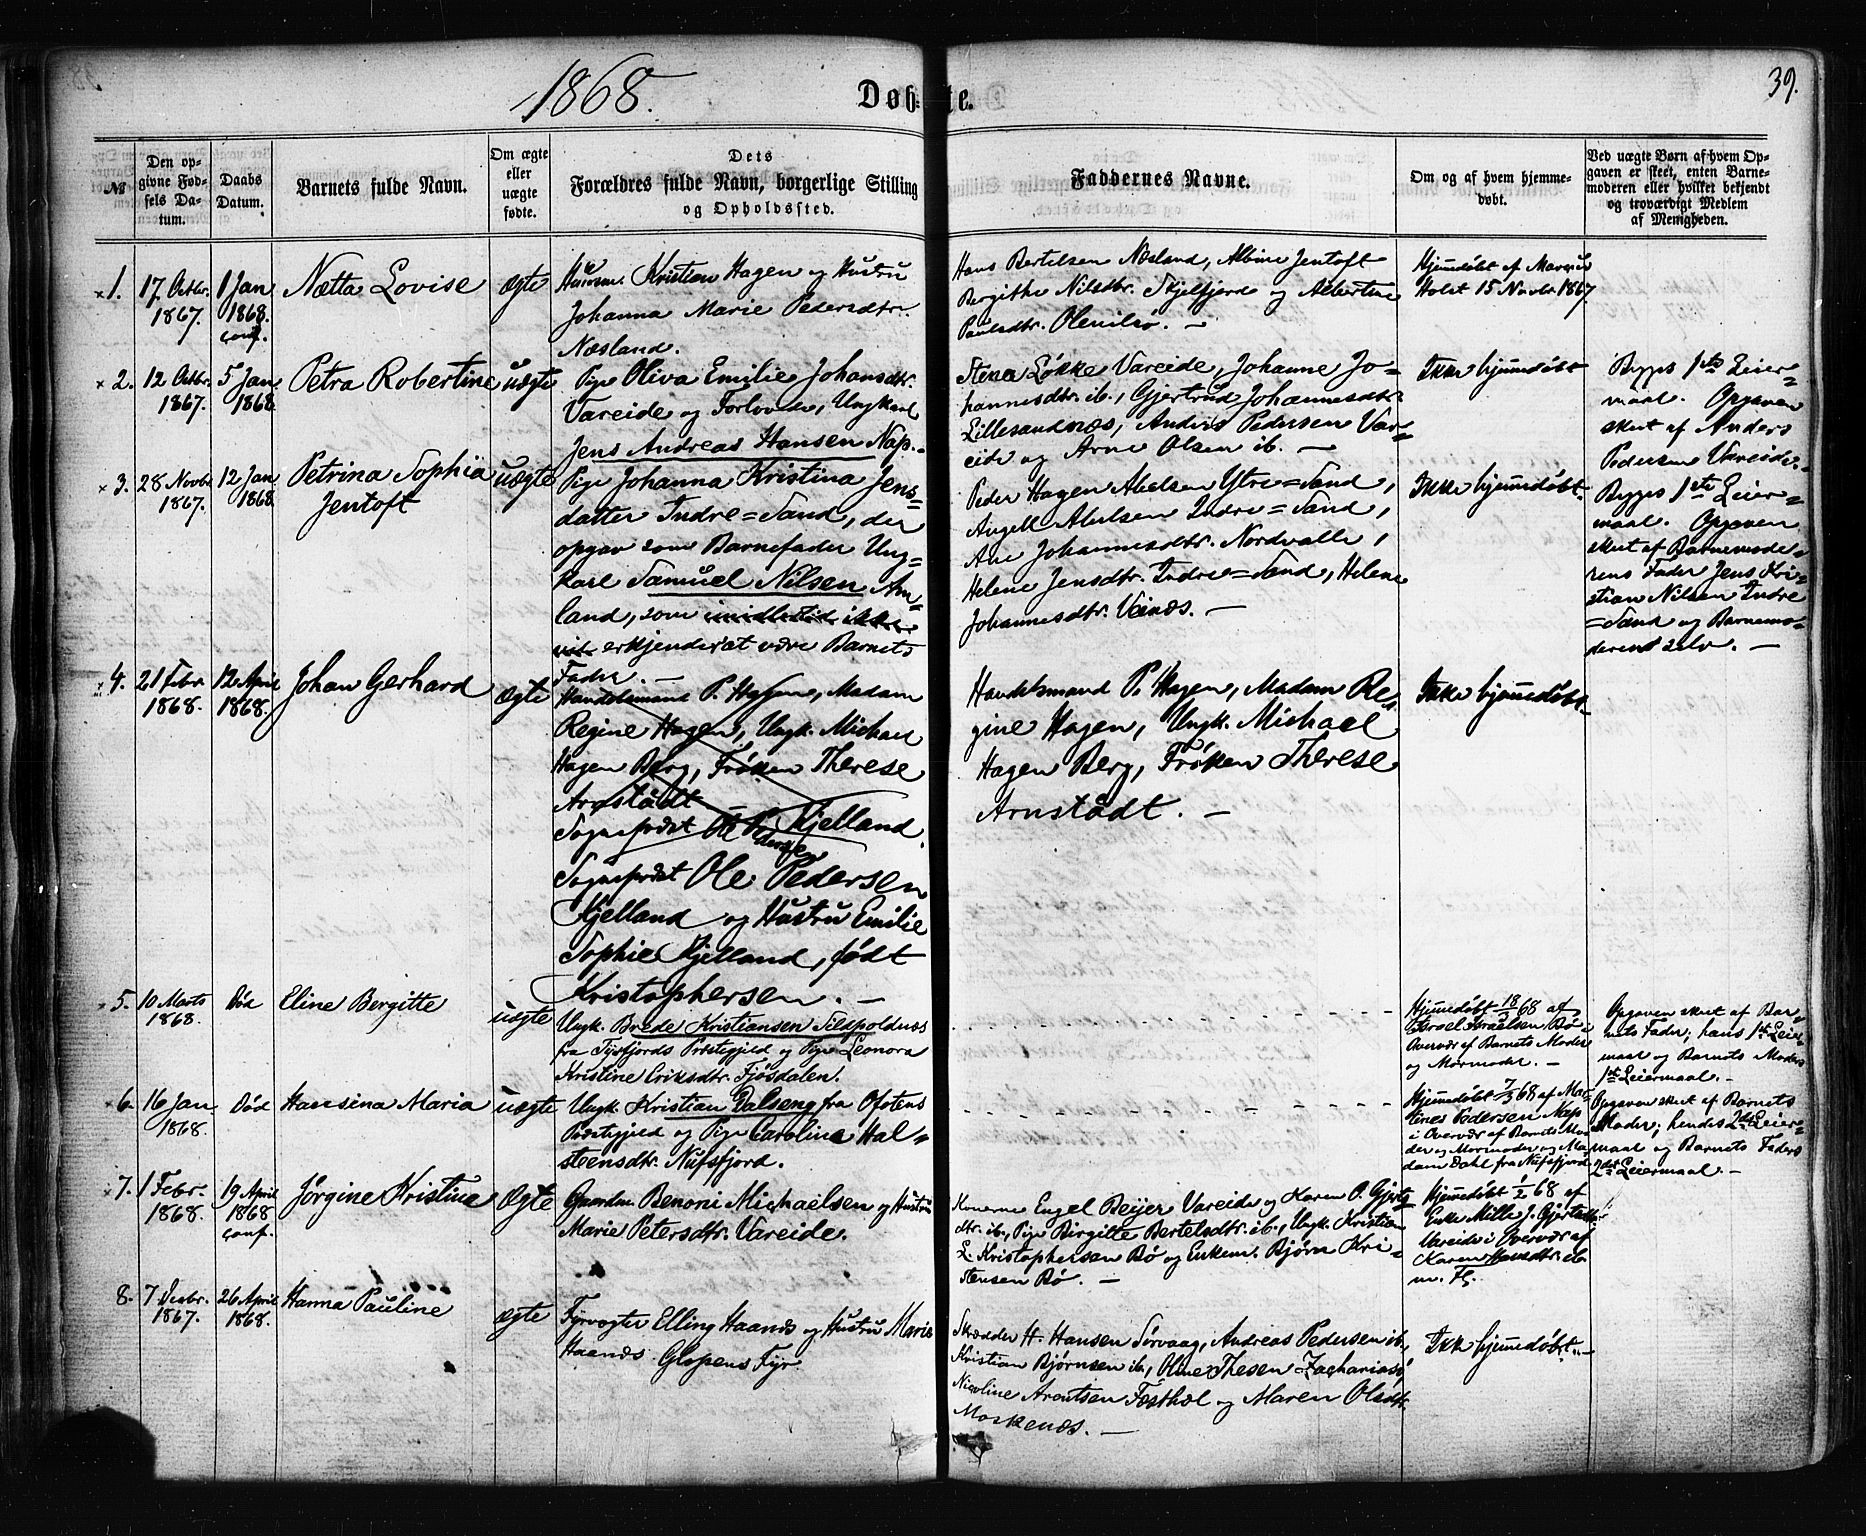 1868.
Døbte.
39.
No
Den op-
givne Fød-
sels Da-
tum.
Daabs
Datum.
Barnets fulde Navn.
Om ægte
eller
uægte
fødte.
Dets
Forældres fulde Navn, borgerlige Stilling
og Opholdssted.
Faddernes Navne.
Om og af hvem hjemme-
døbt.
Ved uægte Børn af hvem Op-
gaven er skeet, enten Barne-
moderen eller hvilket bekjendt
og troværdigt Medlem
af Menigheden.
1.
17 Octbr.
1867.
1 Jan
1868.
conf.
Nætta Lovise
ægte
Husm. Kristian Hagen og Hustru
Johanna Marie Pedersdtr.
Næsland.
Hans Bertelsen Næsland, Albine Jentoft
Bergithe Nilsdtr. Skjelfjord og Albertine
Paulsdtr. Olenilsø. —
Hjemdøbt af Marcus
Holst 15 Novbr 1867
2.
12 Octbr.
1867.
5 Jan
1868.
Petra Robertine
uægte
Pige Oliva Emilie Johansdtr.
Vareide og Forlovede, Ungkarl
Jens Andreas Hansen Nap.
Stena Løkke Vareide, Johanne Jo-
hannesdtr. ib., Gjertrud Johannesdtr
Lillesandnæs, Anders Pedersen Var-
eide og Arne Olsen ib. —
Ikke hjemdøbt
Begges 1ste Leier-
maal. Opgaven
skeet af Anders
Pedersen Vareide.
3.
28 Novbr
1867.
12 Jan
1868.
Petrina Sophia
Jentoft
uægte
Pige Johanna Kristina Jens-
datter Indre=Sand, der
opgav som Barnefader Ung-
karl Samuel Nilsen Am-
land, som imidlertid ikke
vil erkjender at være Barnets
Fader. —
Peder Hagen Abelsen Ytre=Sand,
Angell Abelsen Indre=Sand,
Ane Johannesdtr. Nordvalle,
Helene Jensdtr. Indre=Sand, Helene
Johannesdtr. Veinæs. —
Ikke hjemdøbt.
Begges 1ste Leier-
maal. Opgaven
skeet af Barnemode-
rens Fader Jens Kri-
stian Nilsen Indre
=Sand og Barnemo-
deren selv. —
4.
21 Febr
1868.
12 April
1868.
Johan Gerhard
ægte
Handelsmand P. Hagen, Madam
Regine Hagen, Ungk. Michael
Hagen Berg, Frøken Therese
Arnstådt —
Sognepræst Ole Pedersen Kjelland
Sognepræst Ole Pedersen
Kjelland og Hustru Emilie
Sophie Kjelland, født
Kristophersen. —
Handelsmand P. Hagen, Madam Re-
gine Hagen, Ungk. Michael
Hagen Berg, Frøken Therese
Arnstådt. —
Ikke hjemdøbt.
5.
10 Marts
1868.
Død
Eline Bergitte
uægte
Ungk. Brede Kristiansen Sildpoldnæs
fra Tysfjords Præstegjeld og Pige Leonora
Kristine Eriksdtr. Fjøsdalen.
Hjemdøbt 18/3 68 af
Israel Israelsen Bø-
Overvær af Barnets Moder
og Mormoder. —
Opgaven skeet af Bar-
nets Fader; hans 1ste Leier-
maal og Barnets Moders
1ste Leiermaal. —
6.
16 Jan
1868.
Død
Hansina Maria
uægte
Ungk. Kristian Dalseng fra Ofotens
Præstegjeld og Pige Caroline Hal-
steensdtr. Nufsfjord.
Hjemdøbt 7/3 68 af Mar-
tines Pedersen Nap
i Overvær af Barnets Mo-
der og Mormoder og Ma-
dam Dahl fra Nufsfjord.
Opgaven skeet af Barnets
Moder; hendes 2det Leier-
maal og Barnets Faders
2det Leiermaal. —
7.
1 Febr.
1868.
19 April
1868
conf.
Jørgine Kristine
Ægte
Gaardm. Benoni Michaelsen og Hustru
Marie Petersdtr. Vareide.
Konerne Engel Beijer Vareide og Karen O. Gjerts-
dtr. ib., Pige Birgitte Bertelsdtr. ib., Ungk. Kristian
L. Kristophersen Bø og Enkem. Bjørn Kri-
stensen Bø. —
Hjemdøbt 1/2 68 af
Enke Mille J. Gjertsdtr
Vareide i Overvær af
Karen Hansdtr. ib.
m. Fl.
8.
7 Decbr.
1867.
26 April
1868.
Hanna Pauline
ægte
Fyrvogter Elling Haanæs og Hustru Marie
Haanæs. Glopens Fyr
Skrædder H. Hansen Sørvaag, Andreas Pedersen ib.,
Kristian Bjørnsen ib., Oline Thesen Zachariasø,
Nicoline Arontsen Fæsthæl og Maren Olsdtr.
Moskenæs. —
Ikke hjemdøbt. —